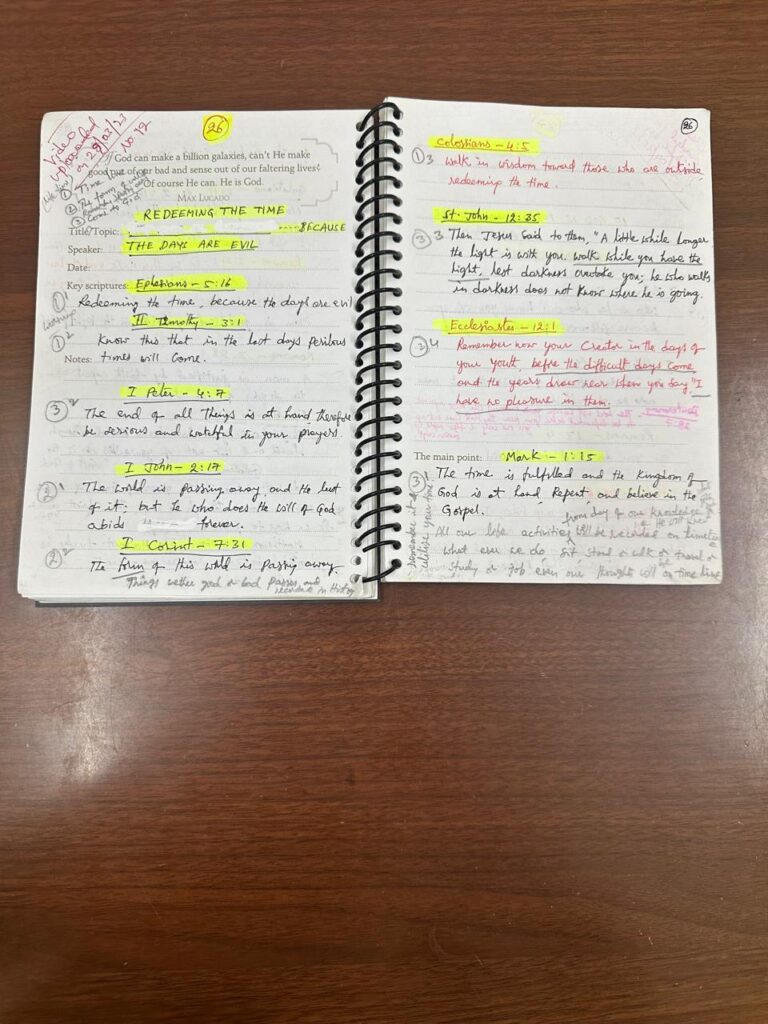 26
Video
uploaded
on 29/03/23
No. 12
God can make a billion galaxies, can't He make
good out of our bad and sense out of our faltering lives?
Of course He can. He is God.
MAX LUCADO
① Time
③ Come to God
REDEEMING THE TIME
Title/Topic: BECAUSE
Speaker: THE DAYS ARE EVIL
Date:
Key scriptures: Ephesians - 5:16
①1 Redeeming the time, because the days are evil
II Timothy - 3:1
①2 Know this that in the last days perilous
Notes: times will come.
I Peter - 4:7
③2 The end of all Things is at hand, therefore
be serious and watchful in your prayers.
I John - 2:17
②1 The world is passing away and the lust
of it; but he who does the will of God
abids forever.
I Corint - 7:31
②2 The form of this world is passing away.
Things wether good or bad passes, and
recorded in History
26
Colossians - 4:5
①3 Walk in wisdom toward those who are outside
redeeming the time.
St. John - 12:35
③3 Then Jesus said to them, "A little while longer
the light is with you. walk while you have the
light, lest darkness overtake you; he who walks
in darkness does not know where he is going.
Ecclesiastes - 12:1
②4 Remember now your Creator in the days of
your youth, before the difficult days come
and the years draw near when you say "I
have no pleasure in them.
The main point: Mark - 1:15
③1 The time is fulfilled and the Kingdom of
God is at hand, Repent, and believe in the
Gospel.
from day of our knowledge
All our life activities will be recorded on
what ever we do Sit, stand or walk or travel or
study or Job even our thoughts will on time line
remember it &
utilise your time